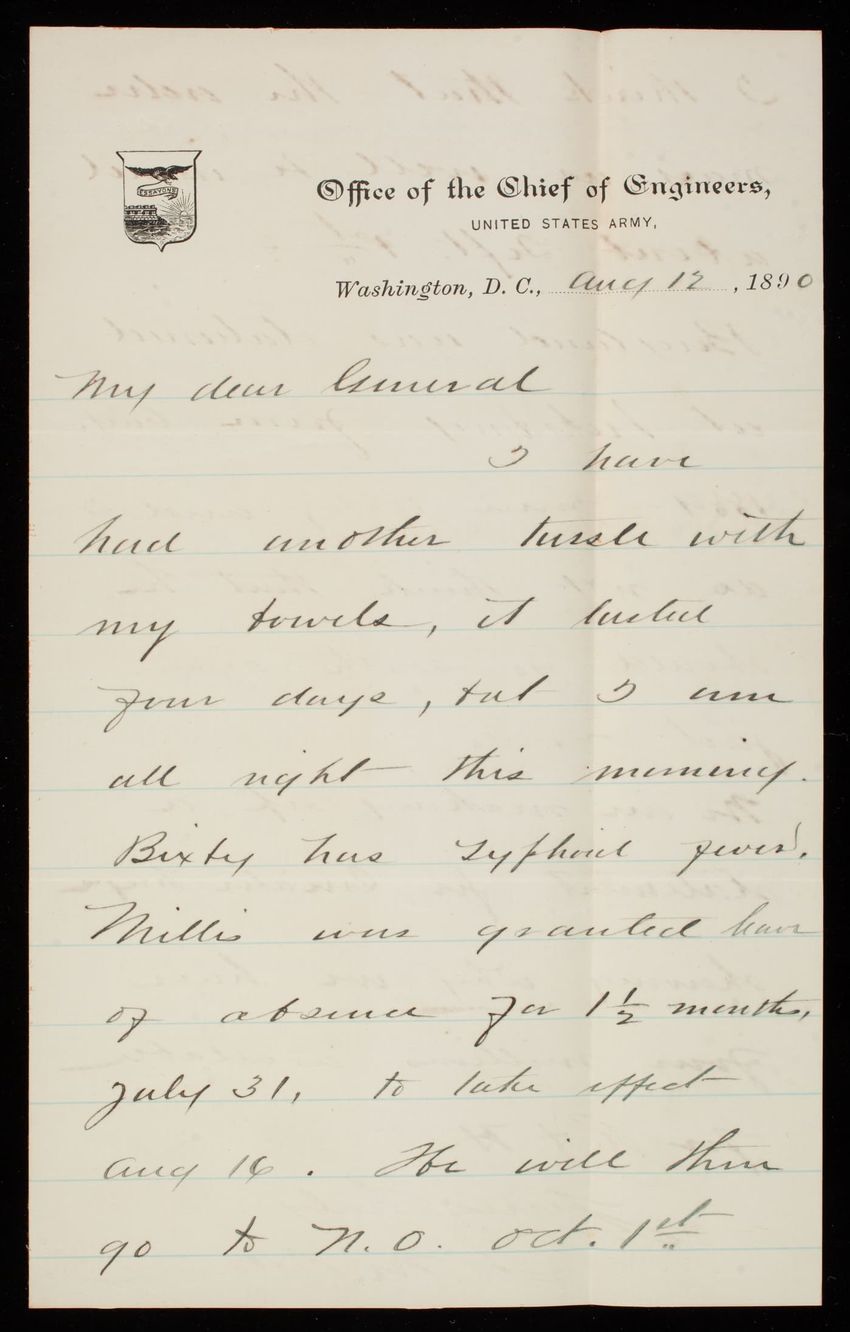 ESSAYONS
Office of the Chief of Engineers,
UNITED STATES ARMY,
Washington, D. C., Aug 12, 1890
My dear General
I have
had another tussle with
my bowels, it lasted
four days, but I am
all right this morning.
Bixby has typhoid fever.
Millis was granted leave
of absence for 1½ months,
July 31, to take effect
Aug 16. He will then
go to N.O. Oct. 1st